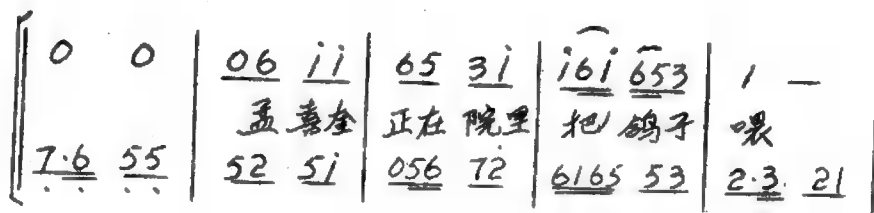 0 0 | 06 i̇i̇ | 65 3i̇ | i̇6i̇ 653 | 1 —
孟喜奎 正在 院里 把 鸽子 喂
7·6 55 | 52 5i̇ | 056 72̇ | 6165 53 | 2·3 21